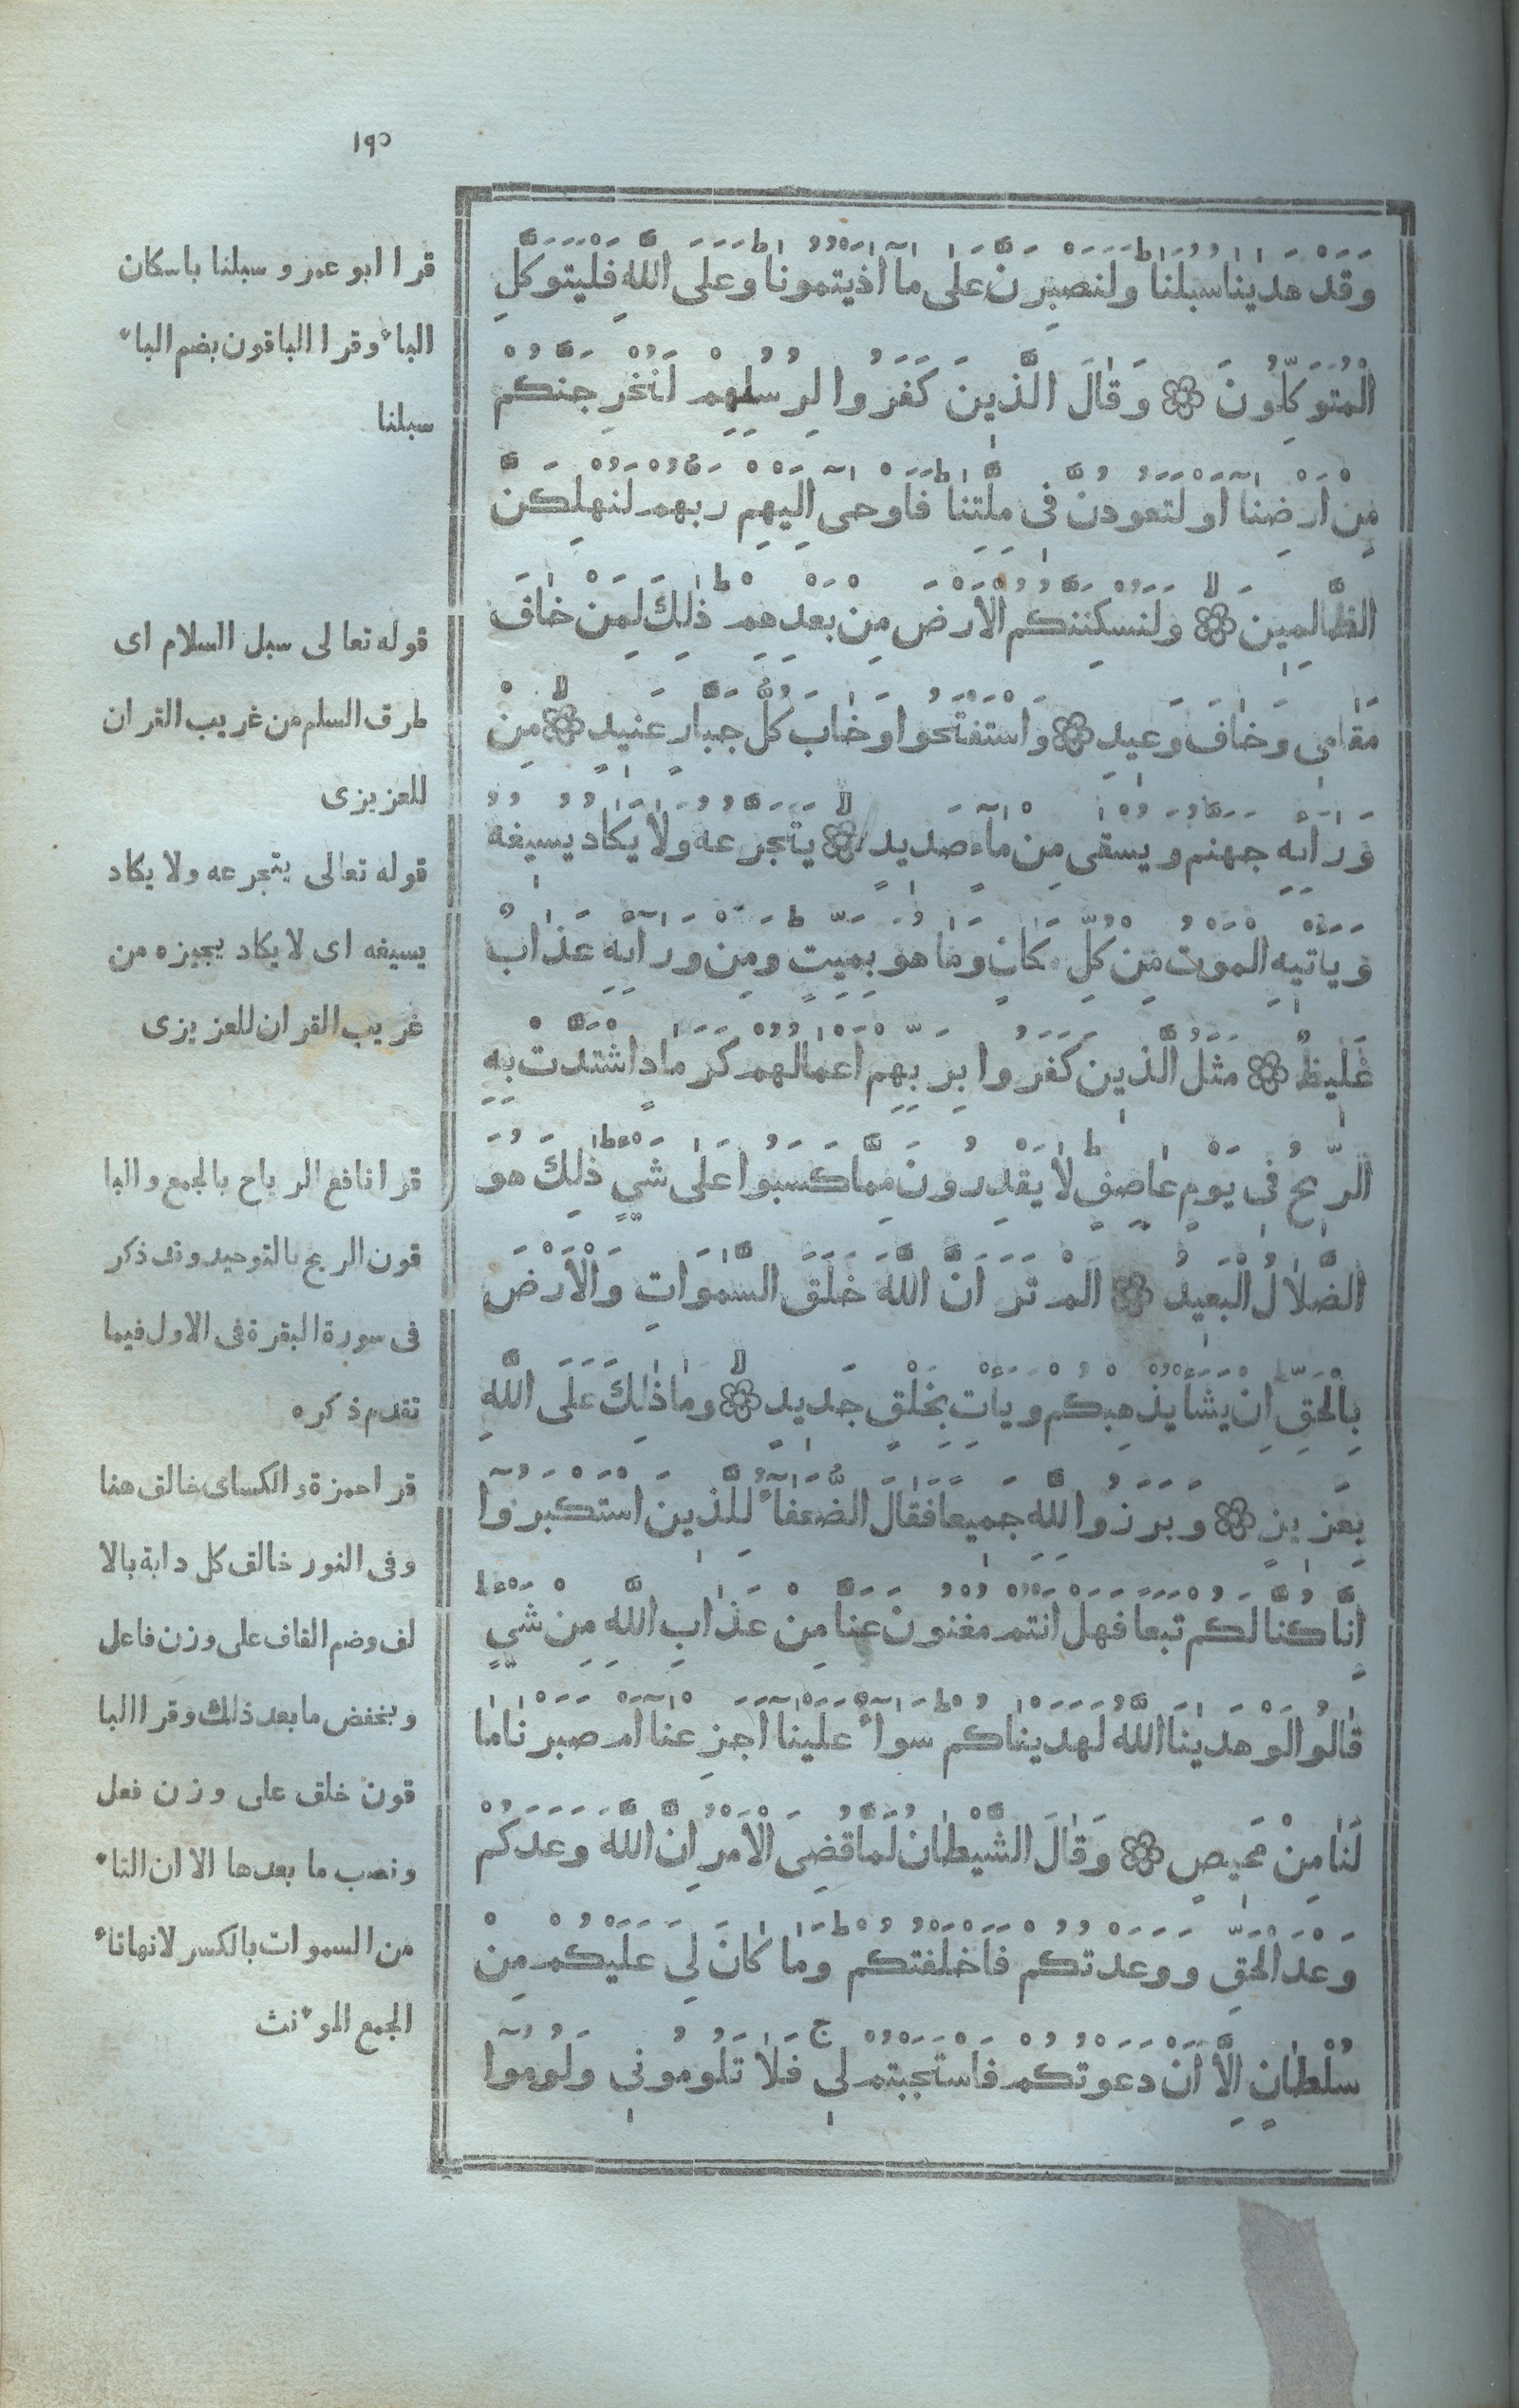 ١٩٥
وَقَدْ هَدٰينَا سُبُلَنَا ط وَلَنَصْبِرَنَّ عَلٰى مَآ اٰذَيْتُمُونَا ط وَعَلَى اللَّهِ فَلْيَتَوَكَّلِ
الْمُتَوَكِّلُونَ ۝ وَقٰالَ الَّذٖينَ كَفَرُوا لِرُسُلِهِمْ لَنُخْرِجَنَّكُمْ
مِنْ اَرْضِنَآ اَوْ لَتَعُودُنَّ فٖى مِلَّتِنٰا ط فَاَوْحٰٓى اِلَيْهِمْ رَبُّهُمْ لَنُهْلِكَنَّ
الظّٰالِمٖينَ لا ۝ وَلَنُسْكِنَنَّكُمُ الْاَرْضَ مِنْ بَعْدِهِمْ ط ذٰلِكَ لِمَنْ خٰافَ
مَقٰامٖى وَخٰافَ وَعٖيدِ ۝ وَاسْتَفْتَحُوا وَخٰابَ كُلُّ جَبَّارٍ عَنٖيدٍ لا ۝ مِنْ
وَرَآئِهٖ جَهَنَّمُ وَيُسْقٰى مِنْ مٰآءٍ صَدٖيدٍ لا ۝ يَتَجَرَّعُهُ وَلٰا يَكٰادُ يُسٖيغُهُ
وَيَاْتٖيهِ الْمَوْتُ مِنْ كُلِّ مَكٰانٍ وَمٰا هُوَ بِمَيِّتٍ ط وَمِنْ وَرَآئِهٖ عَذٰابٌ
غَلٖيظٌ ۝ مَثَلُ الَّذٖينَ كَفَرُوا بِرَبِّهِمْ اَعْمٰالُهُمْ كَرَمٰادٍ اشْتَدَّتْ بِهِ
الرّٖيحُ فٖى يَوْمٍ عٰاصِفٍ ط لٰا يَقْدِرُونَ مِمَّا كَسَبُوا عَلٰى شَىْءٍ ط ذٰلِكَ هُوَ
الضَّلٰالُ الْبَعٖيدُ ۝ اَلَمْ تَرَ اَنَّ اللَّهَ خَلَقَ السَّمٰوَاتِ وَالْاَرْضَ
بِالْحَقِّ ط اِنْ يَشَأْ يُذْهِبْكُمْ وَيَأْتِ بِخَلْقٍ جَدٖيدٍ لا ۝ وَمٰا ذٰلِكَ عَلَى اللَّهِ
بِعَزٖيزٍ ۝ وَبَرَزُوا لِلَّهِ جَمٖيعًا فَقٰالَ الضُّعَفٰٓاءُ لِلَّذٖينَ اسْتَكْبَرُوآ
اِنَّا كُنَّا لَكُمْ تَبَعًا فَهَلْ اَنْتُمْ مُغْنُونَ عَنَّا مِنْ عَذٰابِ اللَّهِ مِنْ شَىْءٍ ط
قٰالُوا لَوْ هَدٰينَا اللَّهُ لَهَدَيْنٰاكُمْ ط سَوَآءٌ عَلَيْنَآ اَجَزِعْنٰآ اَمْ صَبَرْنٰا مٰا
لَنٰا مِنْ مَحٖيصٍ ۝ وَقٰالَ الشَّيْطٰانُ لَمَّا قُضِىَ الْاَمْرُ اِنَّ اللَّهَ وَعَدَكُمْ
وَعْدَ الْحَقِّ وَوَعَدْتُكُمْ فَاَخْلَفْتُكُمْ ط وَمٰا كٰانَ لِىَ عَلَيْكُمْ مِنْ
سُلْطٰانٍ اِلَّا اَنْ دَعَوْتُكُمْ فَاسْتَجَبْتُمْ لٖى ج فَلٰا تَلُومُونٖى وَلُومُوآ
قرا ابو عمرو سبلنا باسكان
الباء وقرا الباقون بضم الباء
سبلنا
قوله تعالى سبل السلام اى
طرق السلم من غريب القران
للعزيزى
قوله تعالى يتجرعه ولا يكاد
يسيغه اى لا يكاد يجيزه من
غريب القران للعزيزى
قرا نافع الرياح بالجمع والبا
قون الريح بالتوحيد وقد ذكر
فى سورة البقرة فى الاول فيما
تقدم ذكره
قرا حمزة والكساى خالق هنا
وفى النور خالق كل دابة بالا
لف وضم القاف على وزن فاعل
وبخفض ما بعد ذلك وقرا البا
قون خلق على وزن فعل
ونصب ما بعدها الا ان التاء
من السموات بالكسر لانها تاء
الجمع المونث